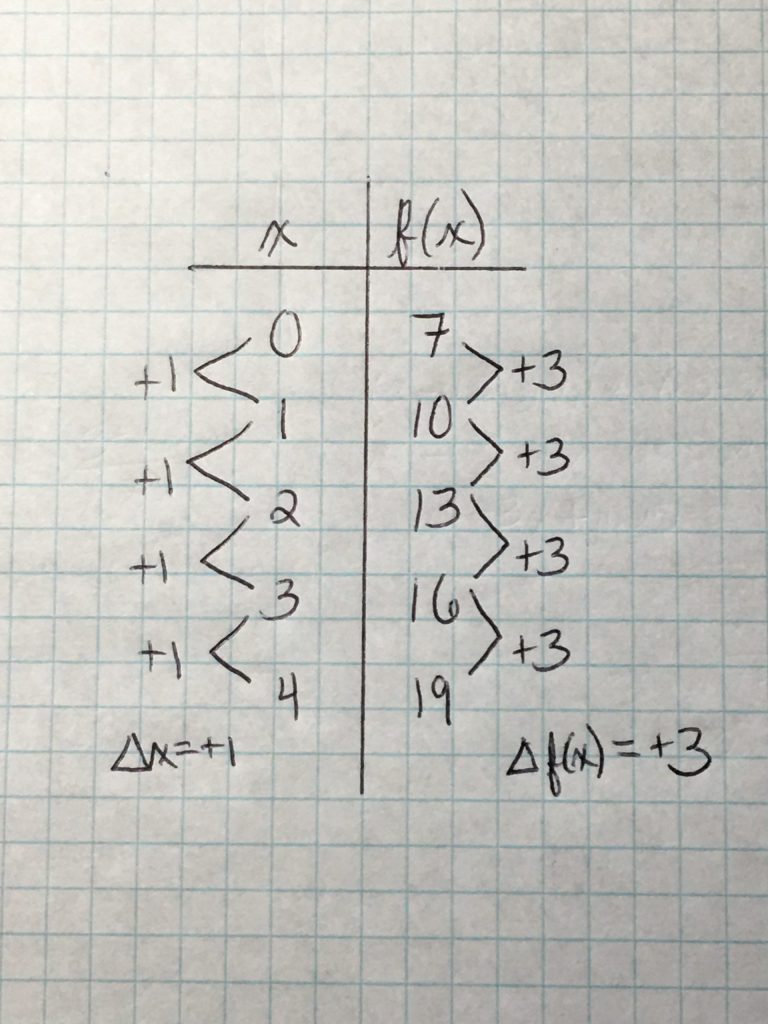 x f(x)
0 7
+1 +3
1 10
+1 +3
2 13
+1 +3
3 16
+1 +3
4 19
Δx=+1 Δf(x)=+3